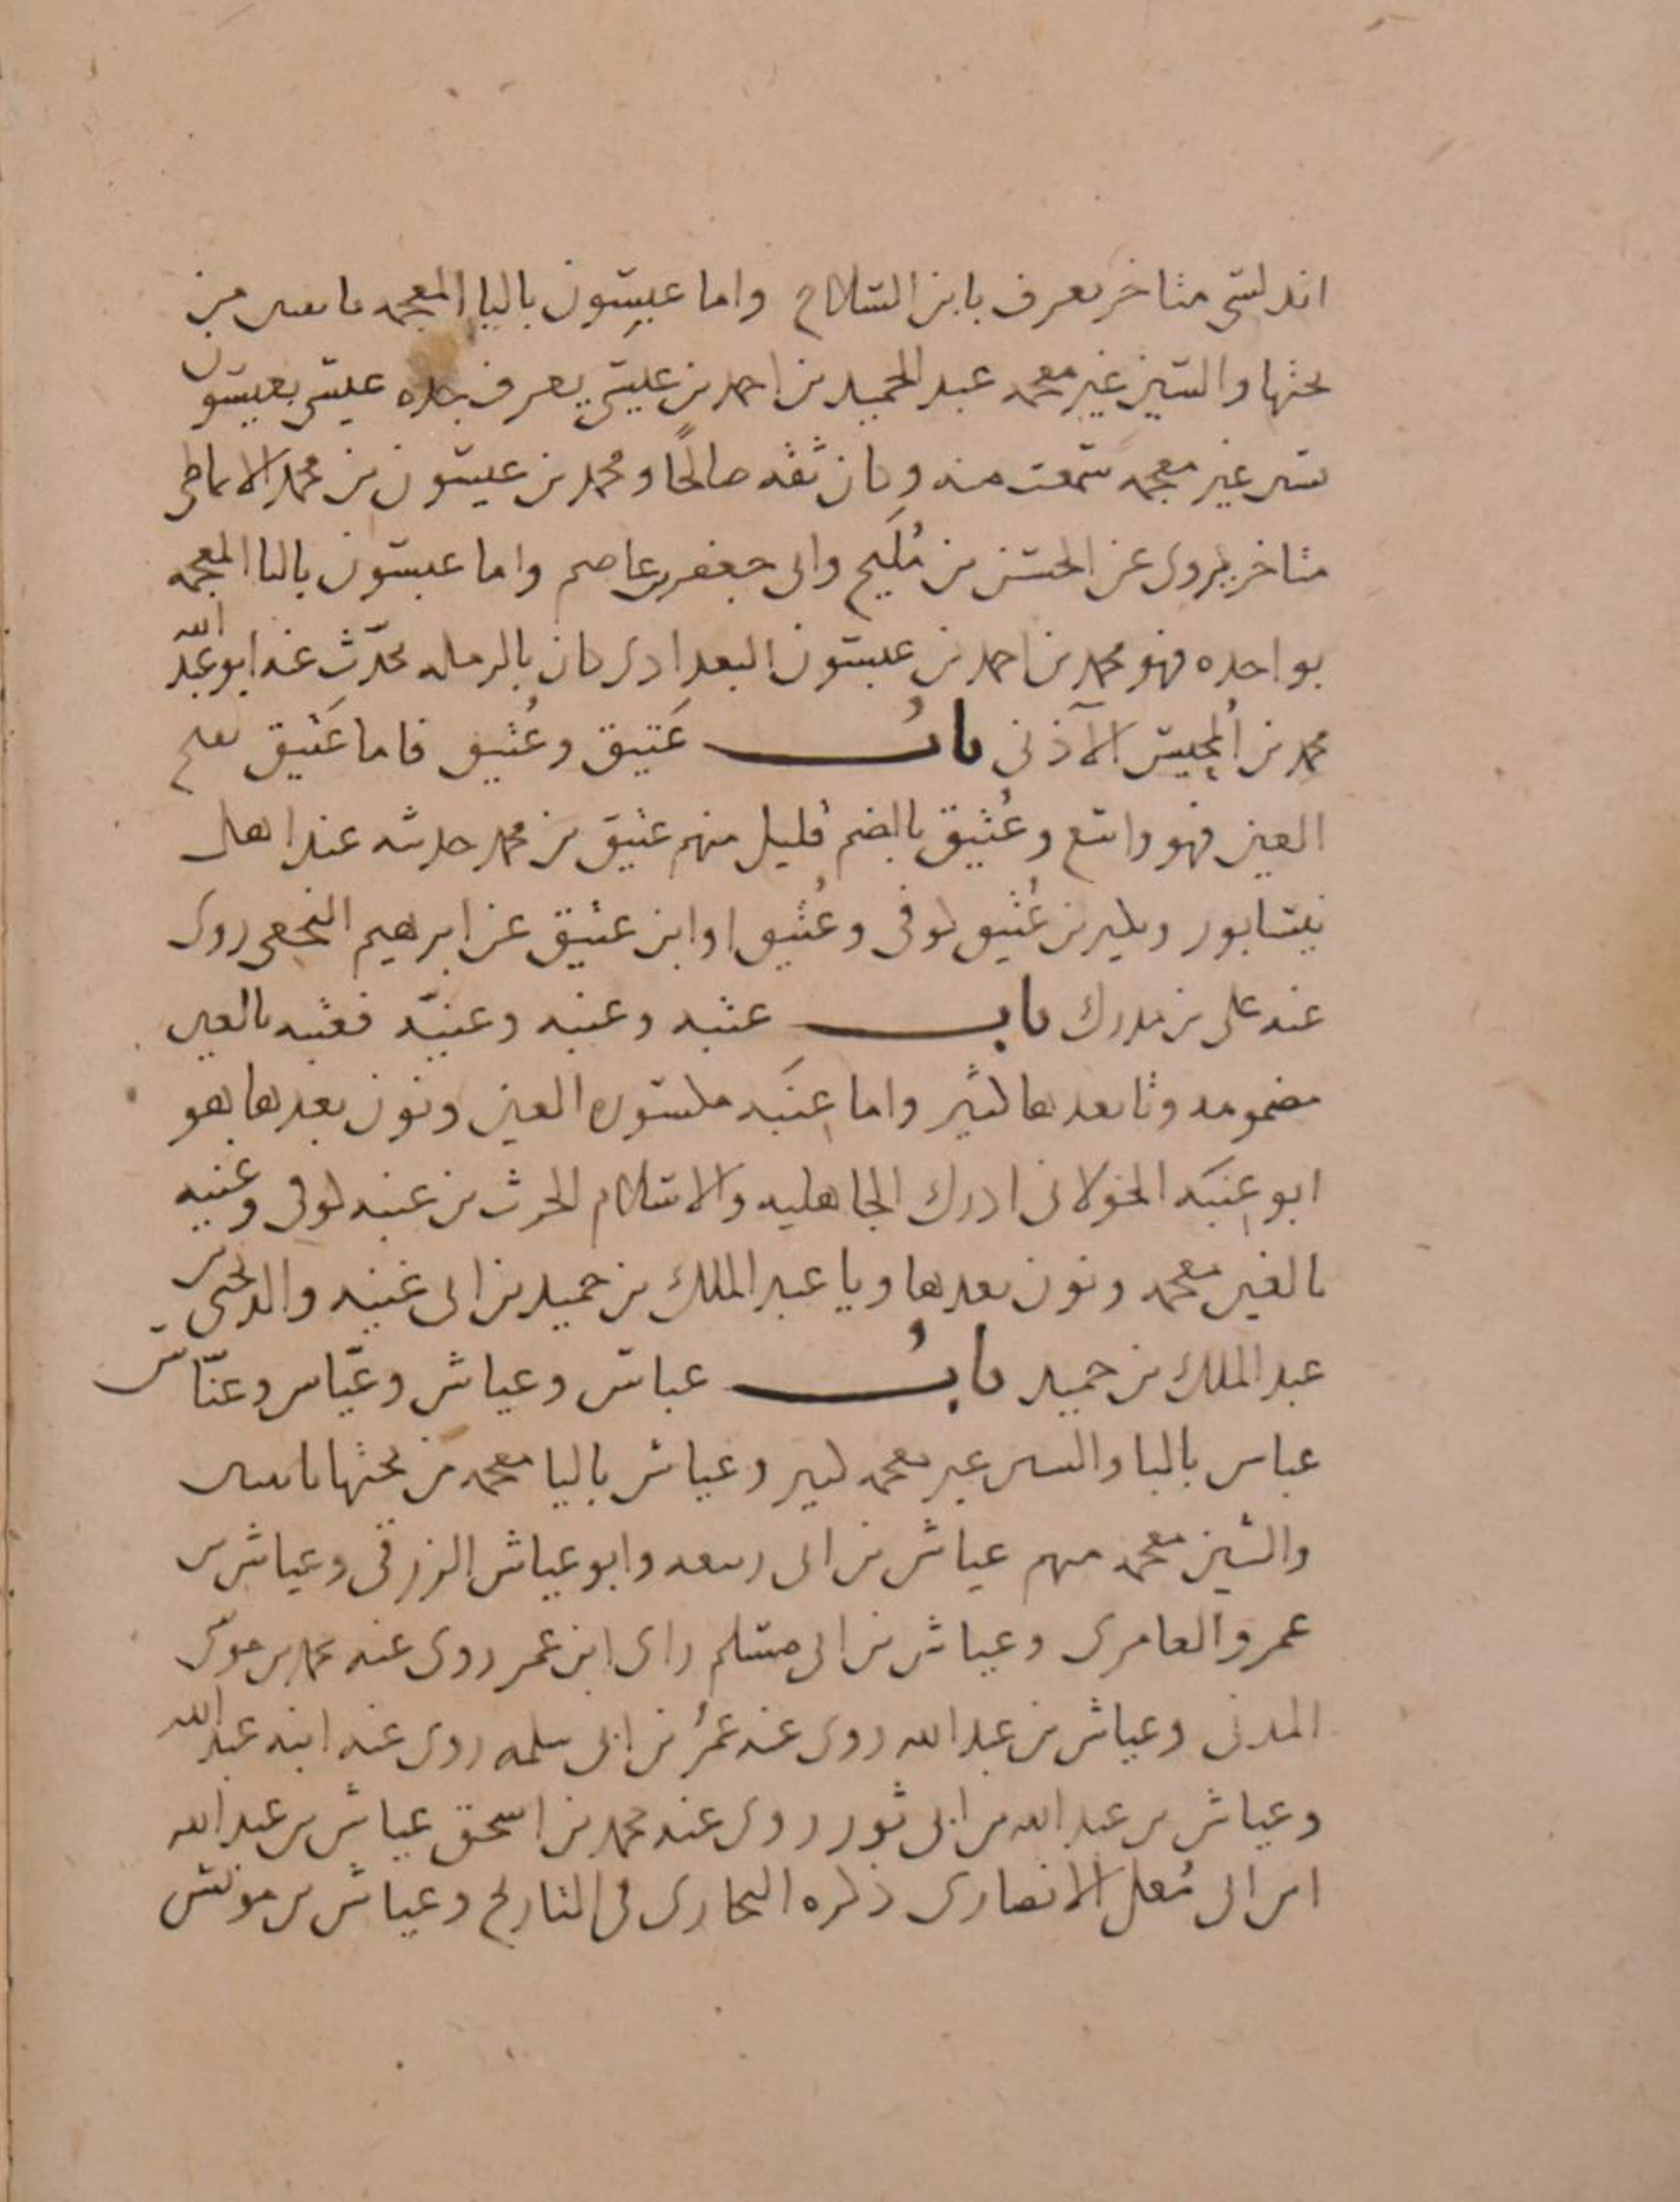 اندلسي متاخر يعرف بابن السلاح واما عيسون باليا المعجمه باثنين من
تحتها والسين غير معجمه عبد الحميد بن احمد بن عيسى يعرف بجده عيسى بعيسون
بسين غير معجمه سمعت منه وكان ثقه صالحًا ومحمد بن عيسون بن محمد الانماطي
متاخر يروى عن الحسن بن مُليح وابى جعفر بن عاصم واما عبسون بالبا المعجمه
بواحده فهو محمد بن احمد بن عبسون البغدادى كان بالرمله حدّث عنه ابو عبد الله
محمد بن الأذنى بابُ عَتيق وعُتيق فاما عَتيق بفتح
العين فهو واسع وعُتيق بالضم قليل منهم عتيق بن محمد حديثه عند اهل
نيسابور وبكير بن عُتيق كوفى وعُتيق او ابن عتيق عن ابرهيم النخعى روى
عنه على بن مدرك باب عتبه وعنبه وغنيّه فعتبه بالعين
مضمومه وتا بعدها كثير واما عِنَبَه مكسوره العين ونون بعدها فهو
ابو عِنَبَه الخولانى ادرك الجاهليه والاسلام الحرث بن عنبه كوفى وغنيه
بالغين معجمه ونون بعدها ويا عبد الملك بن حميد بن ابى غنيه والد يحيى بن
عبد الملك بن حميد بابُ عباس وعياش وعيّاس وعنّاس
عباس بالبا والسين غير معجمه كثير وعياش باليا معجمه من تحتها باثنين
والشين معجمه منهم عياش بن ابى ربيعه وابو عياش الزرقى وعياش بن
عمرو العامرى وعياش بن ابى مسلم راى ابن عمر روى عنه محمد بن موسى
المدنى وعياش بن عبد الله روى عنه عمرُ بن ابى سلمه روى عنه ابنه عبد الله
وعياش بن عبد الله بن ابى ثور روى عنه محمد بن اسحق عياش بن عبد الله
ابن ابى مُعلى الانصارى ذكره البخارى فى التاريخ وعياش بن مونس